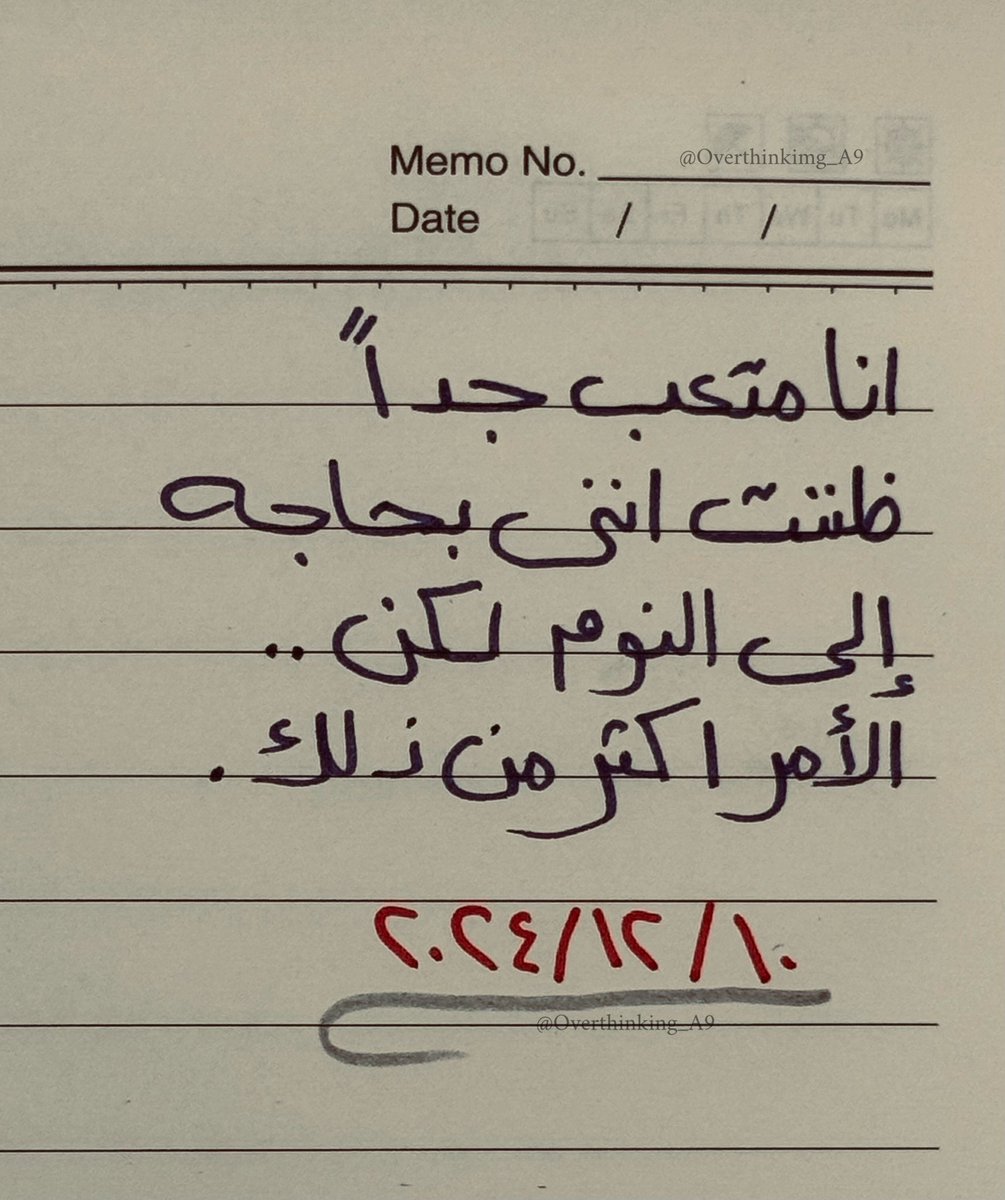 Memo No. @Overthinkimg_A9
Date / /
انا متعب جداً
ظننت انني بحاجه
إلى النوم لكن ..
الأمر اكثر من ذلك .
٢٠٢٤/١٢/١٠
@Overthinking_A9